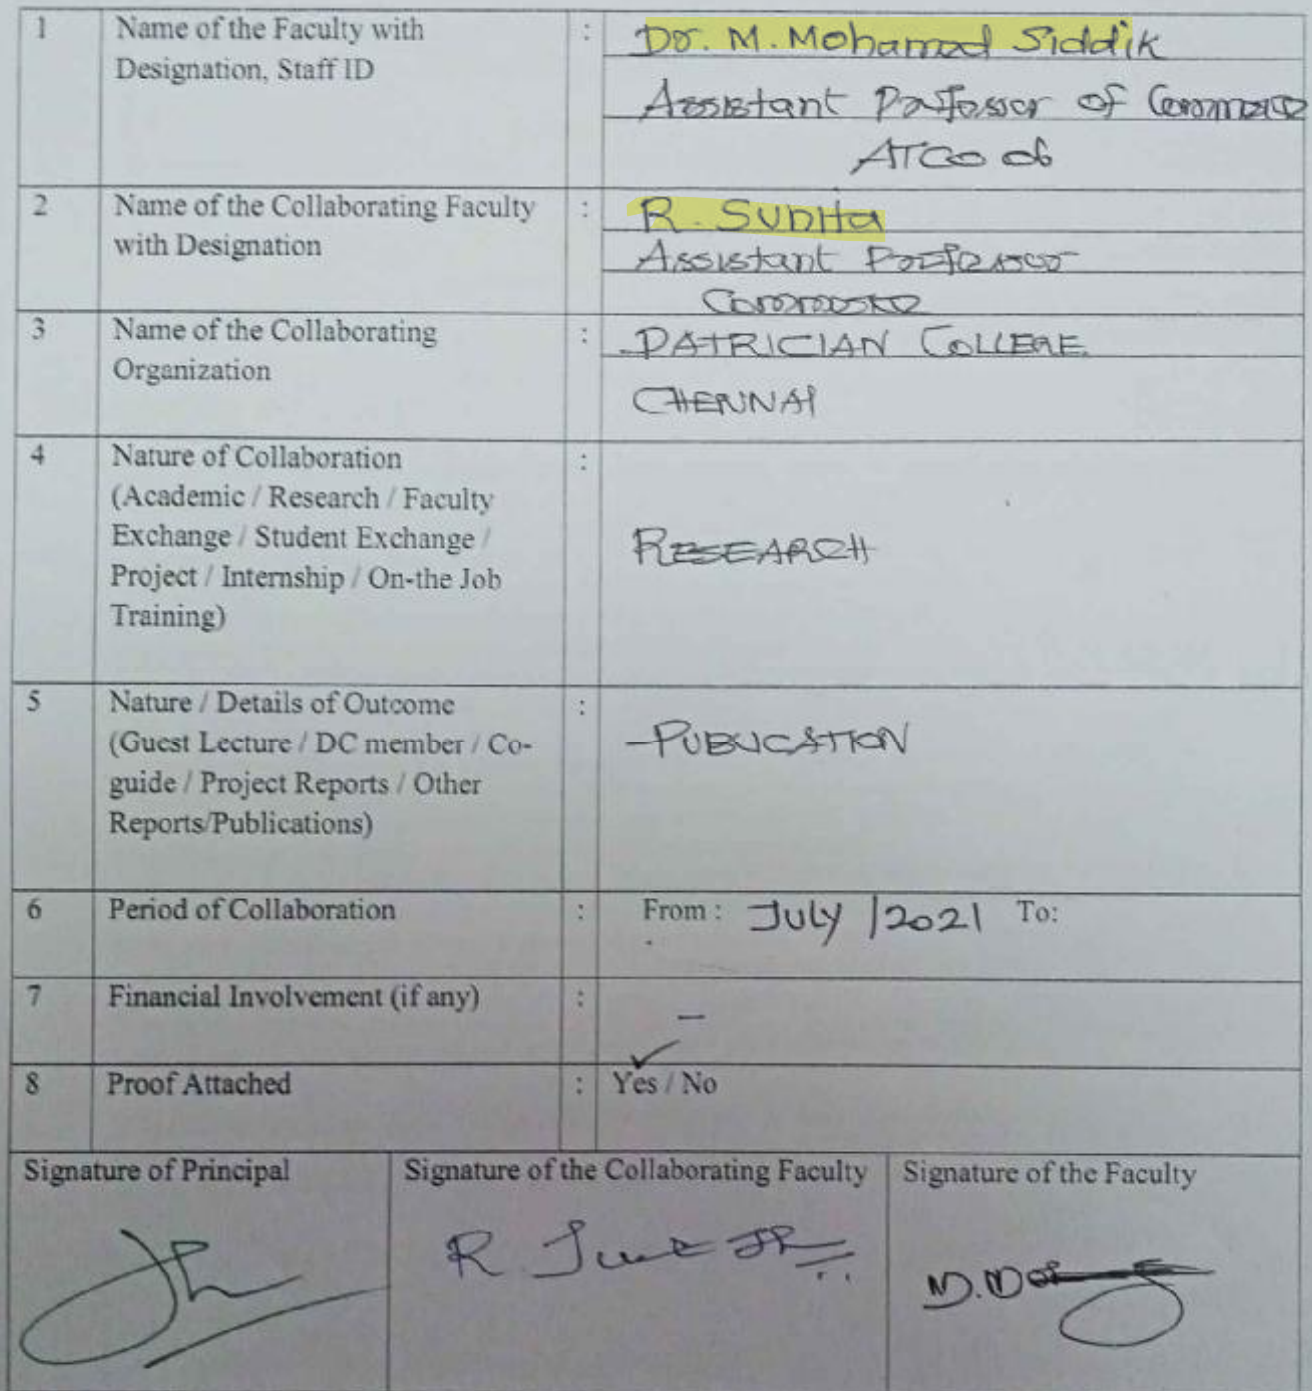 1 Name of the Faculty with : Dr. M. Mohamed Siddik
Designation, Staff ID Assistant Professor of Commerce
ATCO 06
2 Name of the Collaborating Faculty : R. SUNITA
with Designation Assistant Professor
Commerce
3 Name of the Collaborating : PATRICIAN COLLEGE
Organization CHENNAI
4 Nature of Collaboration :
(Academic / Research / Faculty
Exchange / Student Exchange / RESEARCH
Project / Internship / On-the Job
Training)
5 Nature / Details of Outcome :
(Guest Lecture / DC member / Co- - PUBLICATION
guide / Project Reports / Other
Reports/Publications)
6 Period of Collaboration : From : July / 2021 To:
7 Financial Involvement (if any) : -
8 Proof Attached : Yes / No
Signature of Principal Signature of the Collaborating Faculty Signature of the Faculty